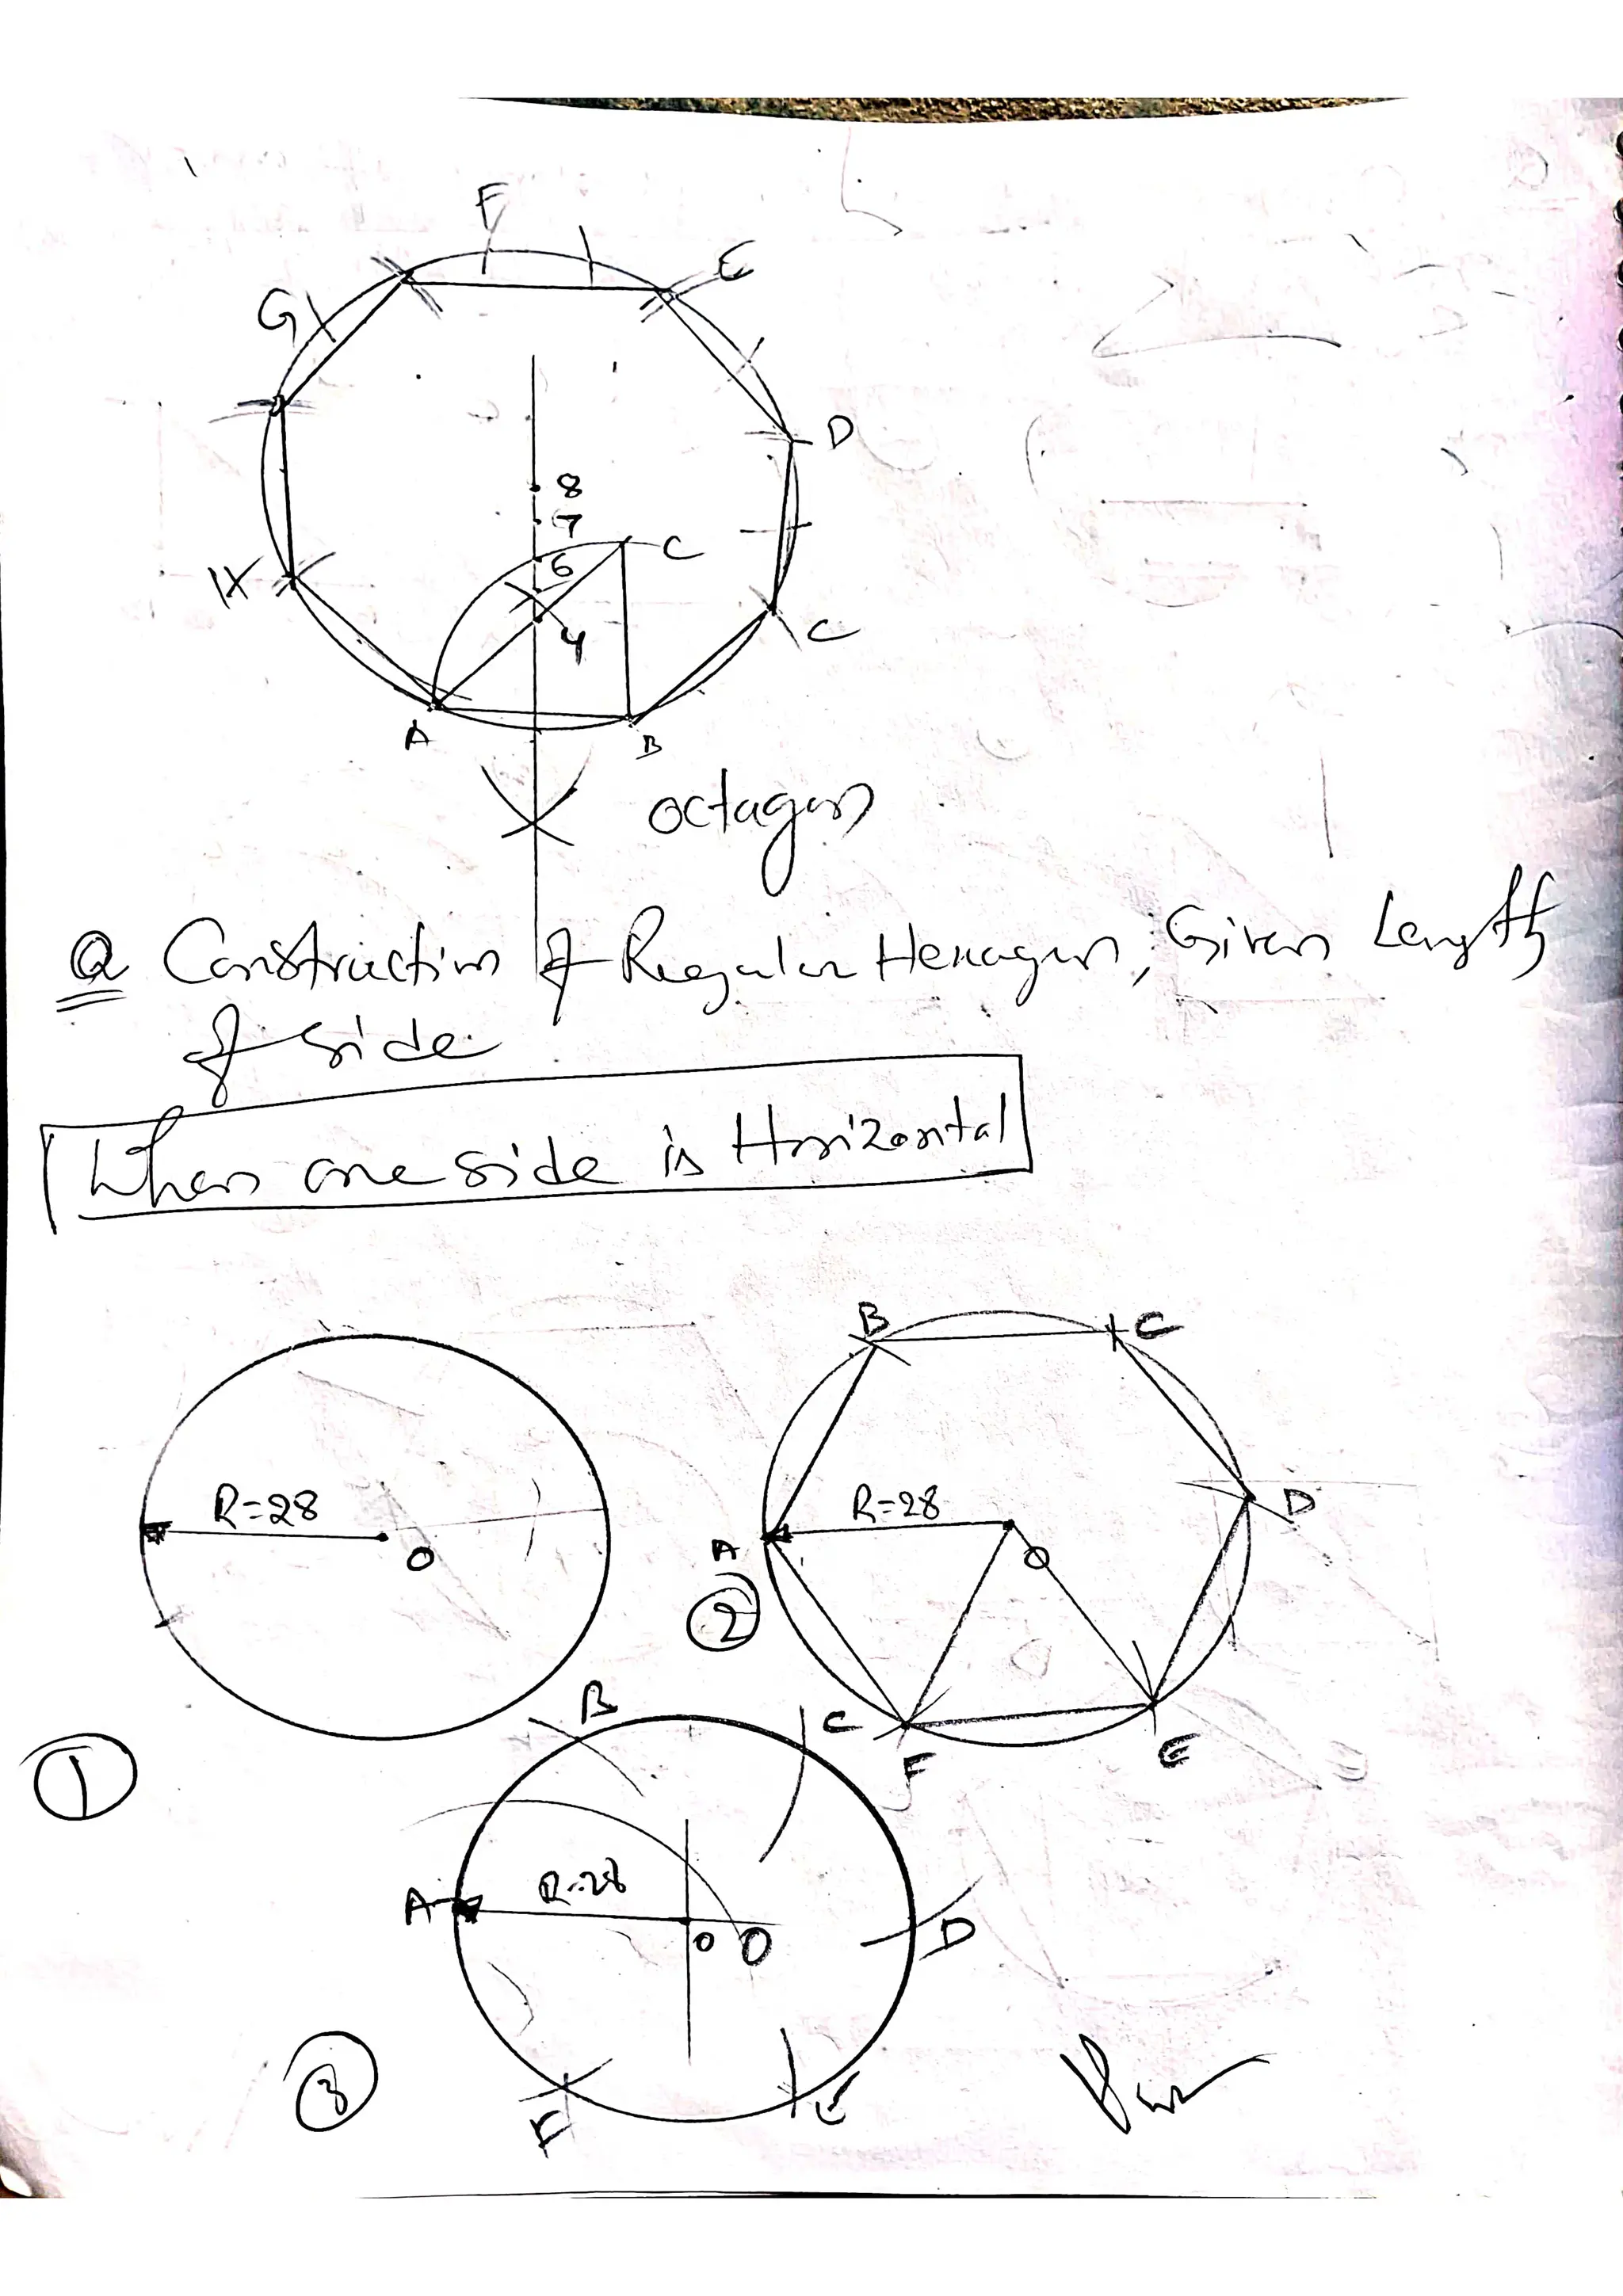 F
E
G
D
8
7
C
6
H
4
C
A
B
octagon
Q Construction of Regular Hexagon, Given Length
of side
When one side is Horizontal
B
C
R=28
R=28
D
A
O
O
2
B
C
F
E
1
R=28
A
O O
D
3
F
E